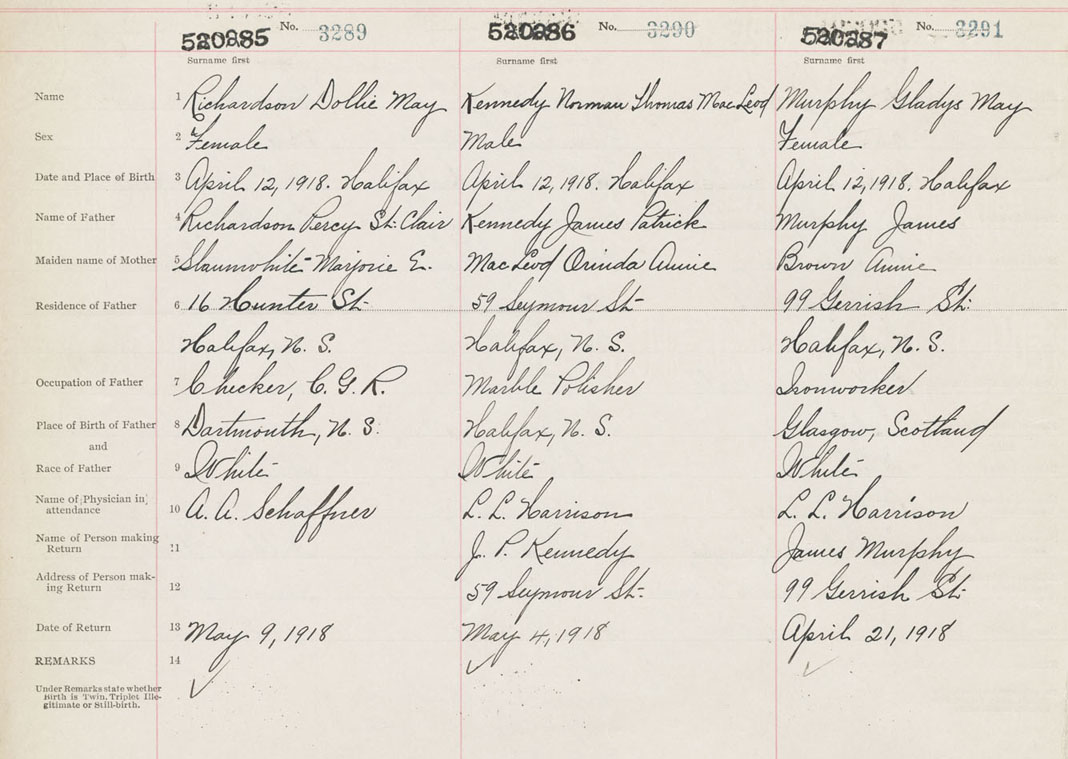 520285 No. 3289 520286 No. 3290 520287 No. 3291
Surname first Surname first Surname first
Name 1 Richardson Dollie May Kennedy Norman Thomas MacLeod Murphy Gladys May
Sex 2 Female Male Female
Date and Place of Birth 3 April 12, 1918. Halifax April 12, 1918. Halifax April 12, 1918. Halifax
Name of Father 4 Richardson Percy St. Clair Kennedy James Patrick Murphy James
Maiden name of Mother 5 Slaunwhite Marjorie E. MacLeod Orinda Annie Brown Annie
Residence of Father 6 16 Hunter St. 59 Seymour St. 99 Gerrish St.
Halifax, N. S. Halifax, N. S. Halifax, N. S.
Occupation of Father 7 Checker, C. G. R. Marble Polisher Ironworker
Place of Birth of Father 8 Dartmouth, N. S. Halifax, N. S. Glasgow, Scotland
and
Race of Father 9 White White White
Name of Physician in
attendance 10 A. A. Schaffner L. L. Harrison L. L. Harrison
Name of Person making
Return 11 J. P. Kennedy James Murphy
Address of Person mak-
ing Return 12 59 Seymour St. 99 Gerrish St.
Date of Return 13 May 9, 1918 May 4, 1918 April 21, 1918
REMARKS 14
Under Remarks state whether
Birth is Twin, Triplet Ille-
gitimate or Still-birth.